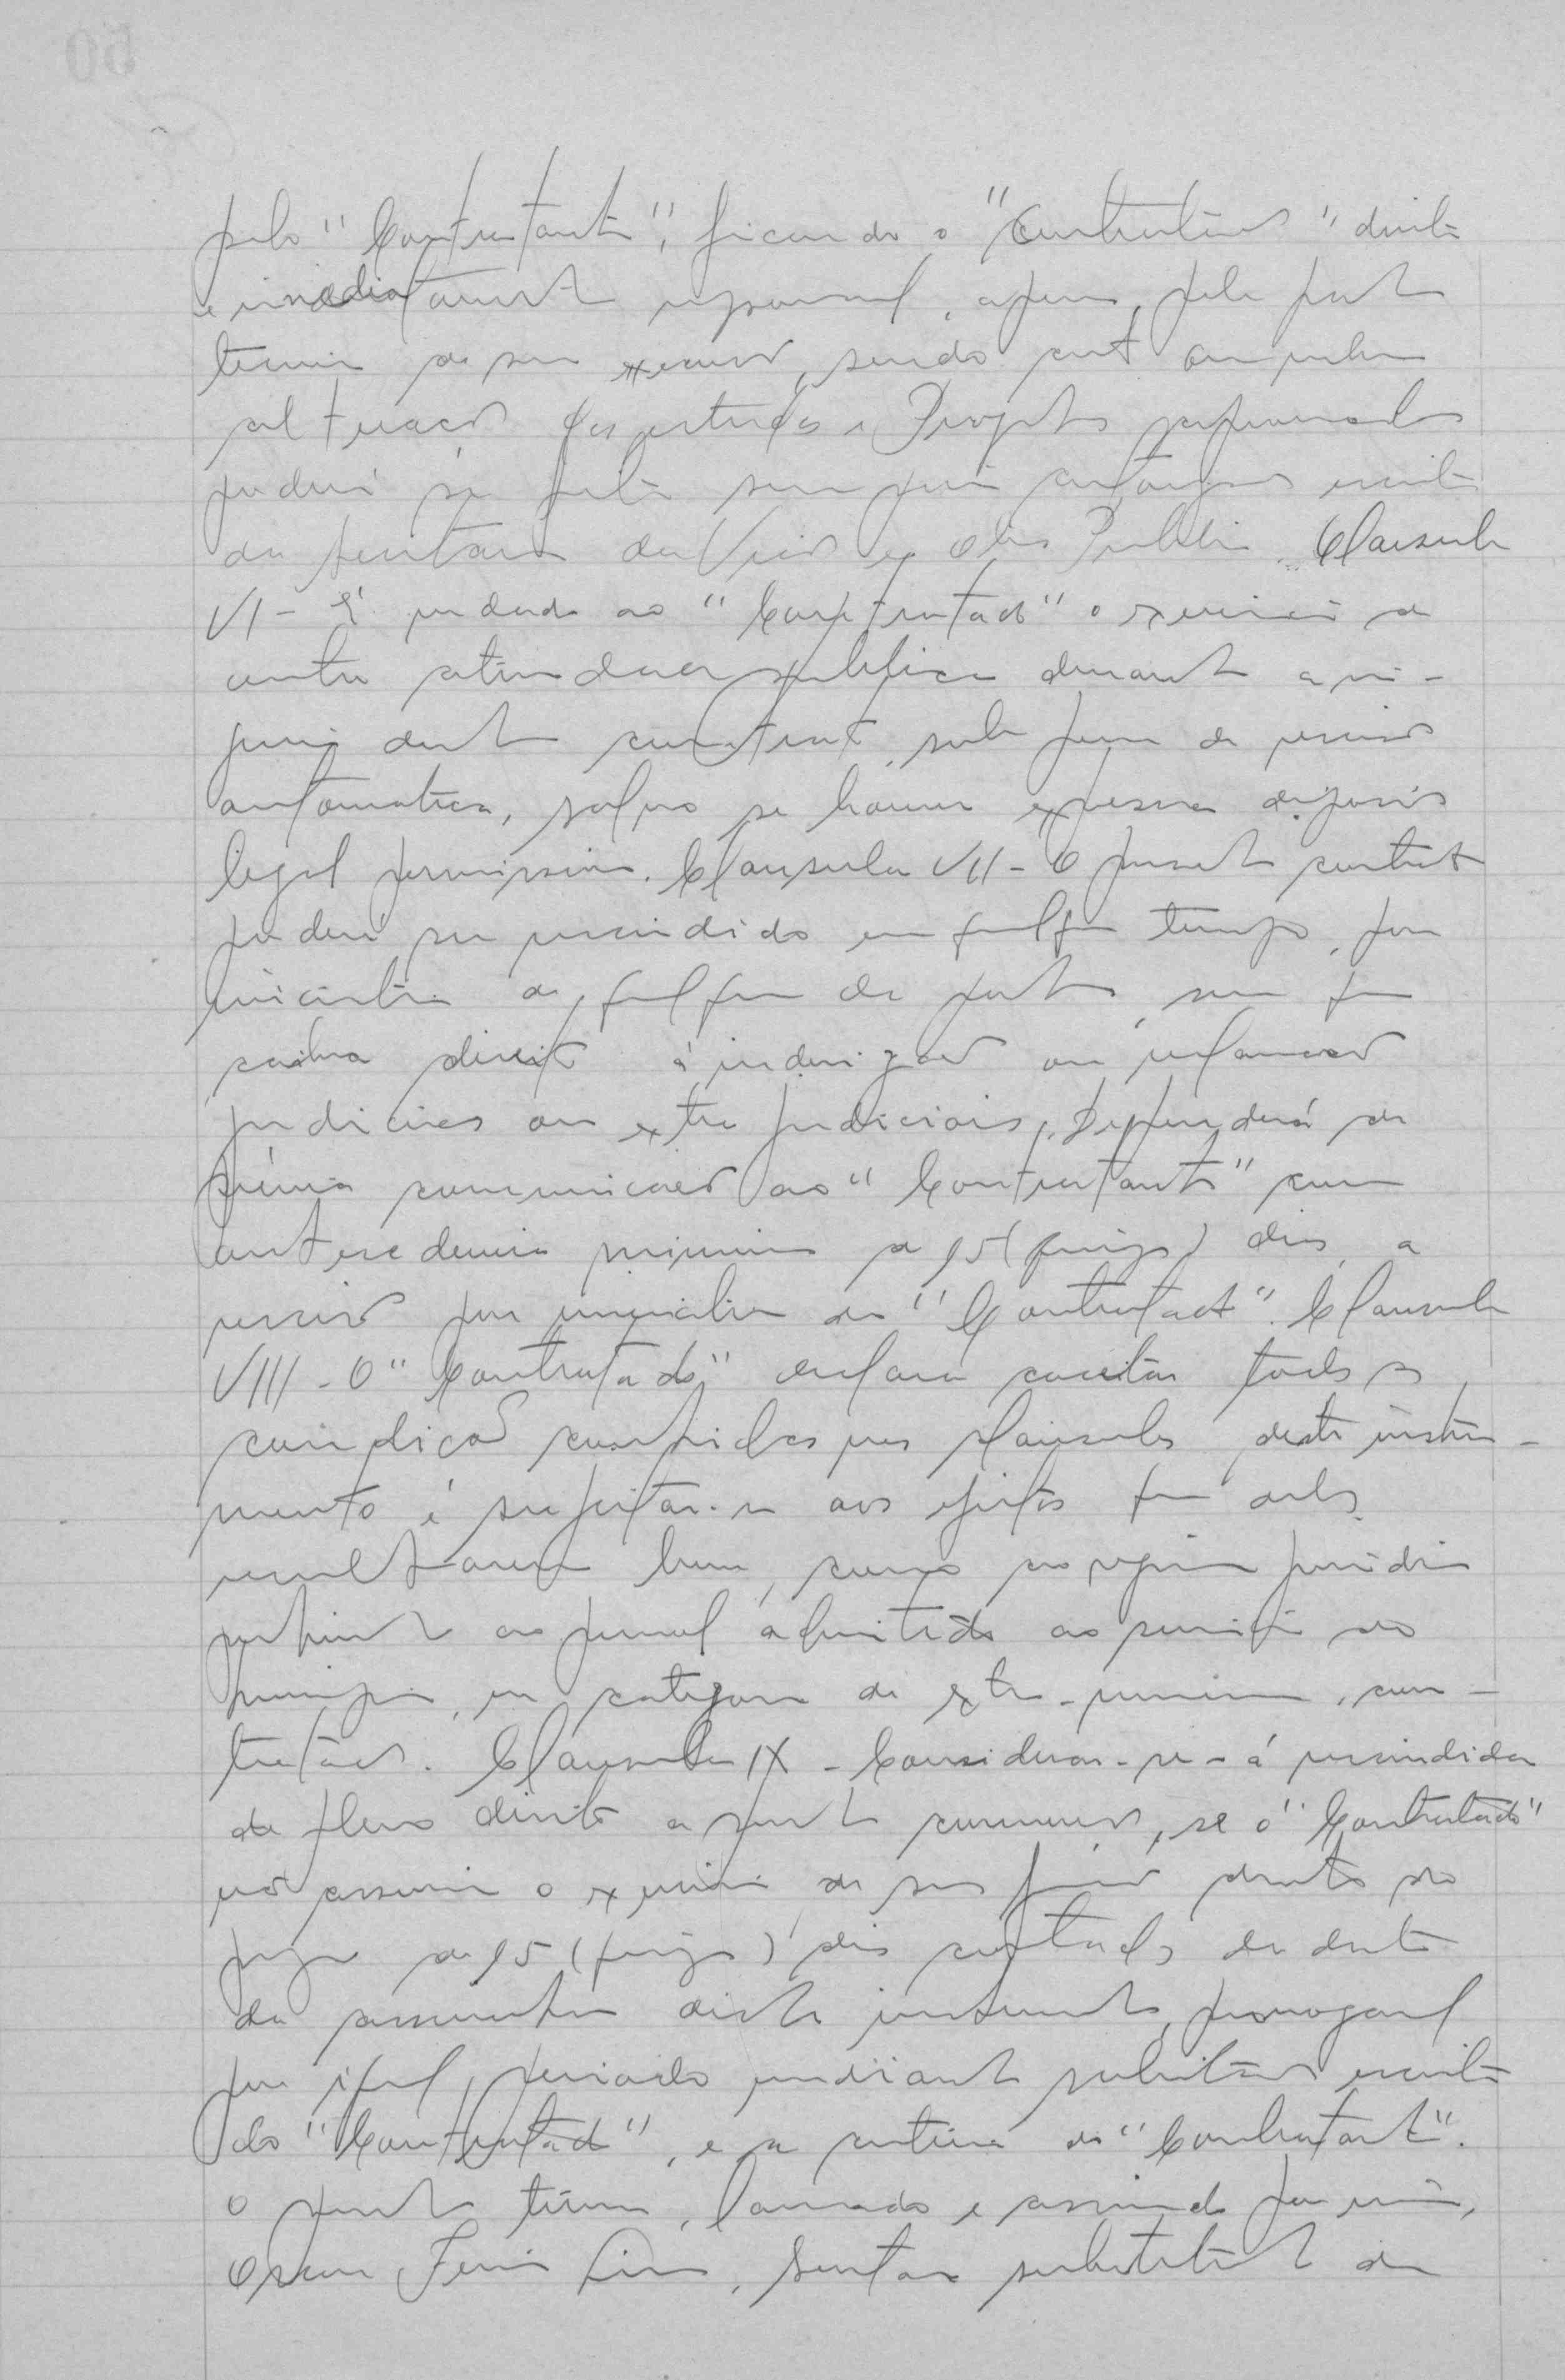 pelo "Contratante", ficando o "Contratado" direta
e imediatamente responsavel, apenas, pela parte
tecnica de sua execução, sendo que nenhuma
alteração dos estudos e Projetos
poderá ser feita sem previa autorização escrita
da Secretaria de Viação e Obras Publicas. Clausula
VI - É vedado ao "Contratado" o exercicio de
outra atividade publica durante a vi-
gencia deste contrato, sob pena de rescisão
automatica, salvo se houver expressa disposição
legal permissiva. Clausula VII - O presente contrato
poderá ser rescindido em qualquer tempo, por
iniciativa de qualquer das partes, sem que
caiba direito á indenização ou reclamação
judiciais ou extra judiciais, Dependerá de
prévia comunicação ao "Contratante" com
antecedencia minima de 15 (quinze) dias, a
rescisão por iniciativa do "Contratado". Clausula
VIII - O "Contratado" declara aceitar todas as
condições contidas nas clausulas deste instru-
mento e sujeitar-se aos efeitos que delas
resultarem bem, como ao regime juridico
pertinente ao pessoal admitido ao serviço do
Municipio, na categoria de extra-numerario, con-
tratado. Clausula IX - Considerar-se-á rescindido
de pleno direito o presente, se o "Contratado"
não assumir o exercicio de sua função dentro do
prazo de 15 (quinze) dias contados da data
da assinatura deste instrumento, prorrogavel
por igual periodo mediante solicitação escrita
do "Contratado", e a criterio do "Contratante".
O presente têrmo, lavrado e assinado por mim,
Oscar Lima, substituto de